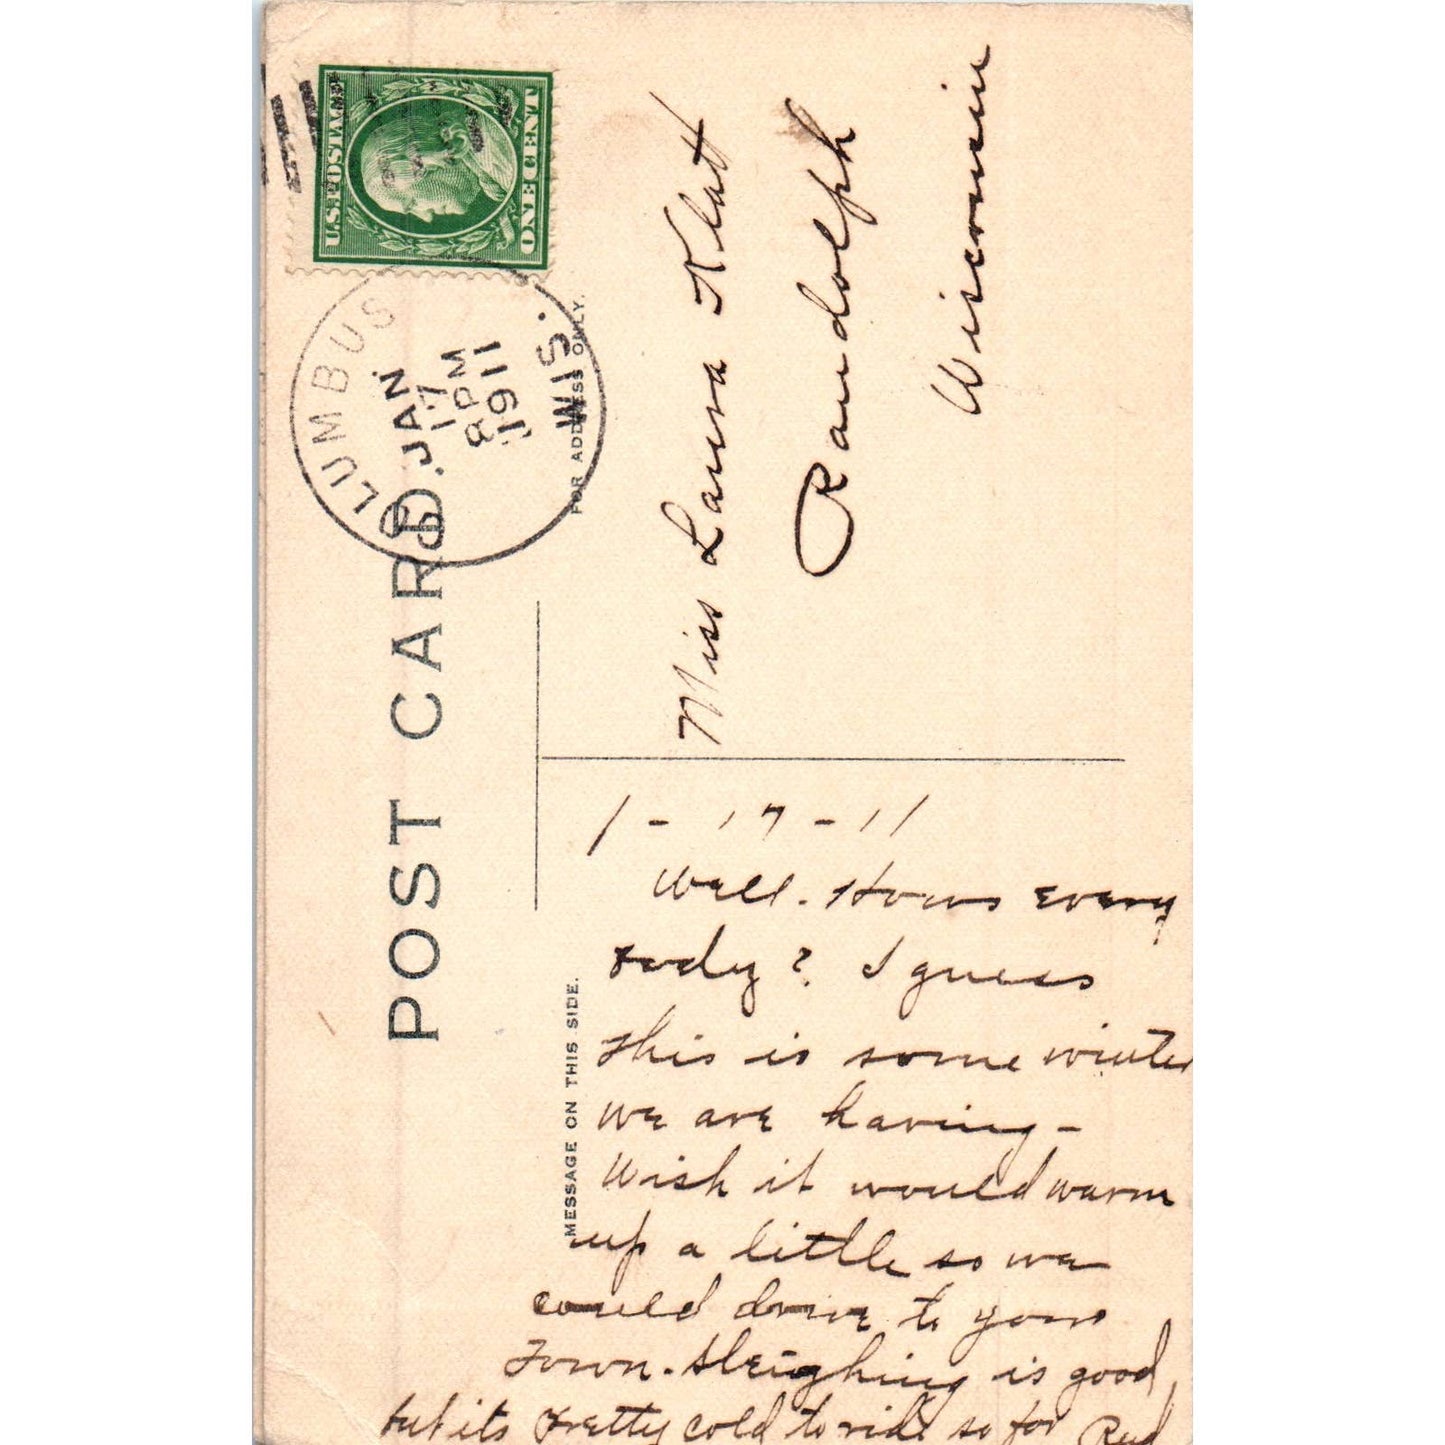 U.S. POSTAGE
ONE CENT
COLUMBUS
JAN.
17
8 PM
1911
WIS.
POST CARD.
FOR ADDRESS ONLY.
Miss Laura Klatt
Randolph
Wisconsin
MESSAGE ON THIS SIDE.
1-17-11
Well. Hows every
body? I guess
this is some winter
we are having-
Wish it would warm
up a little so we
could drive to your
Town. Sleighing is good,
but its pretty cold to ride so far